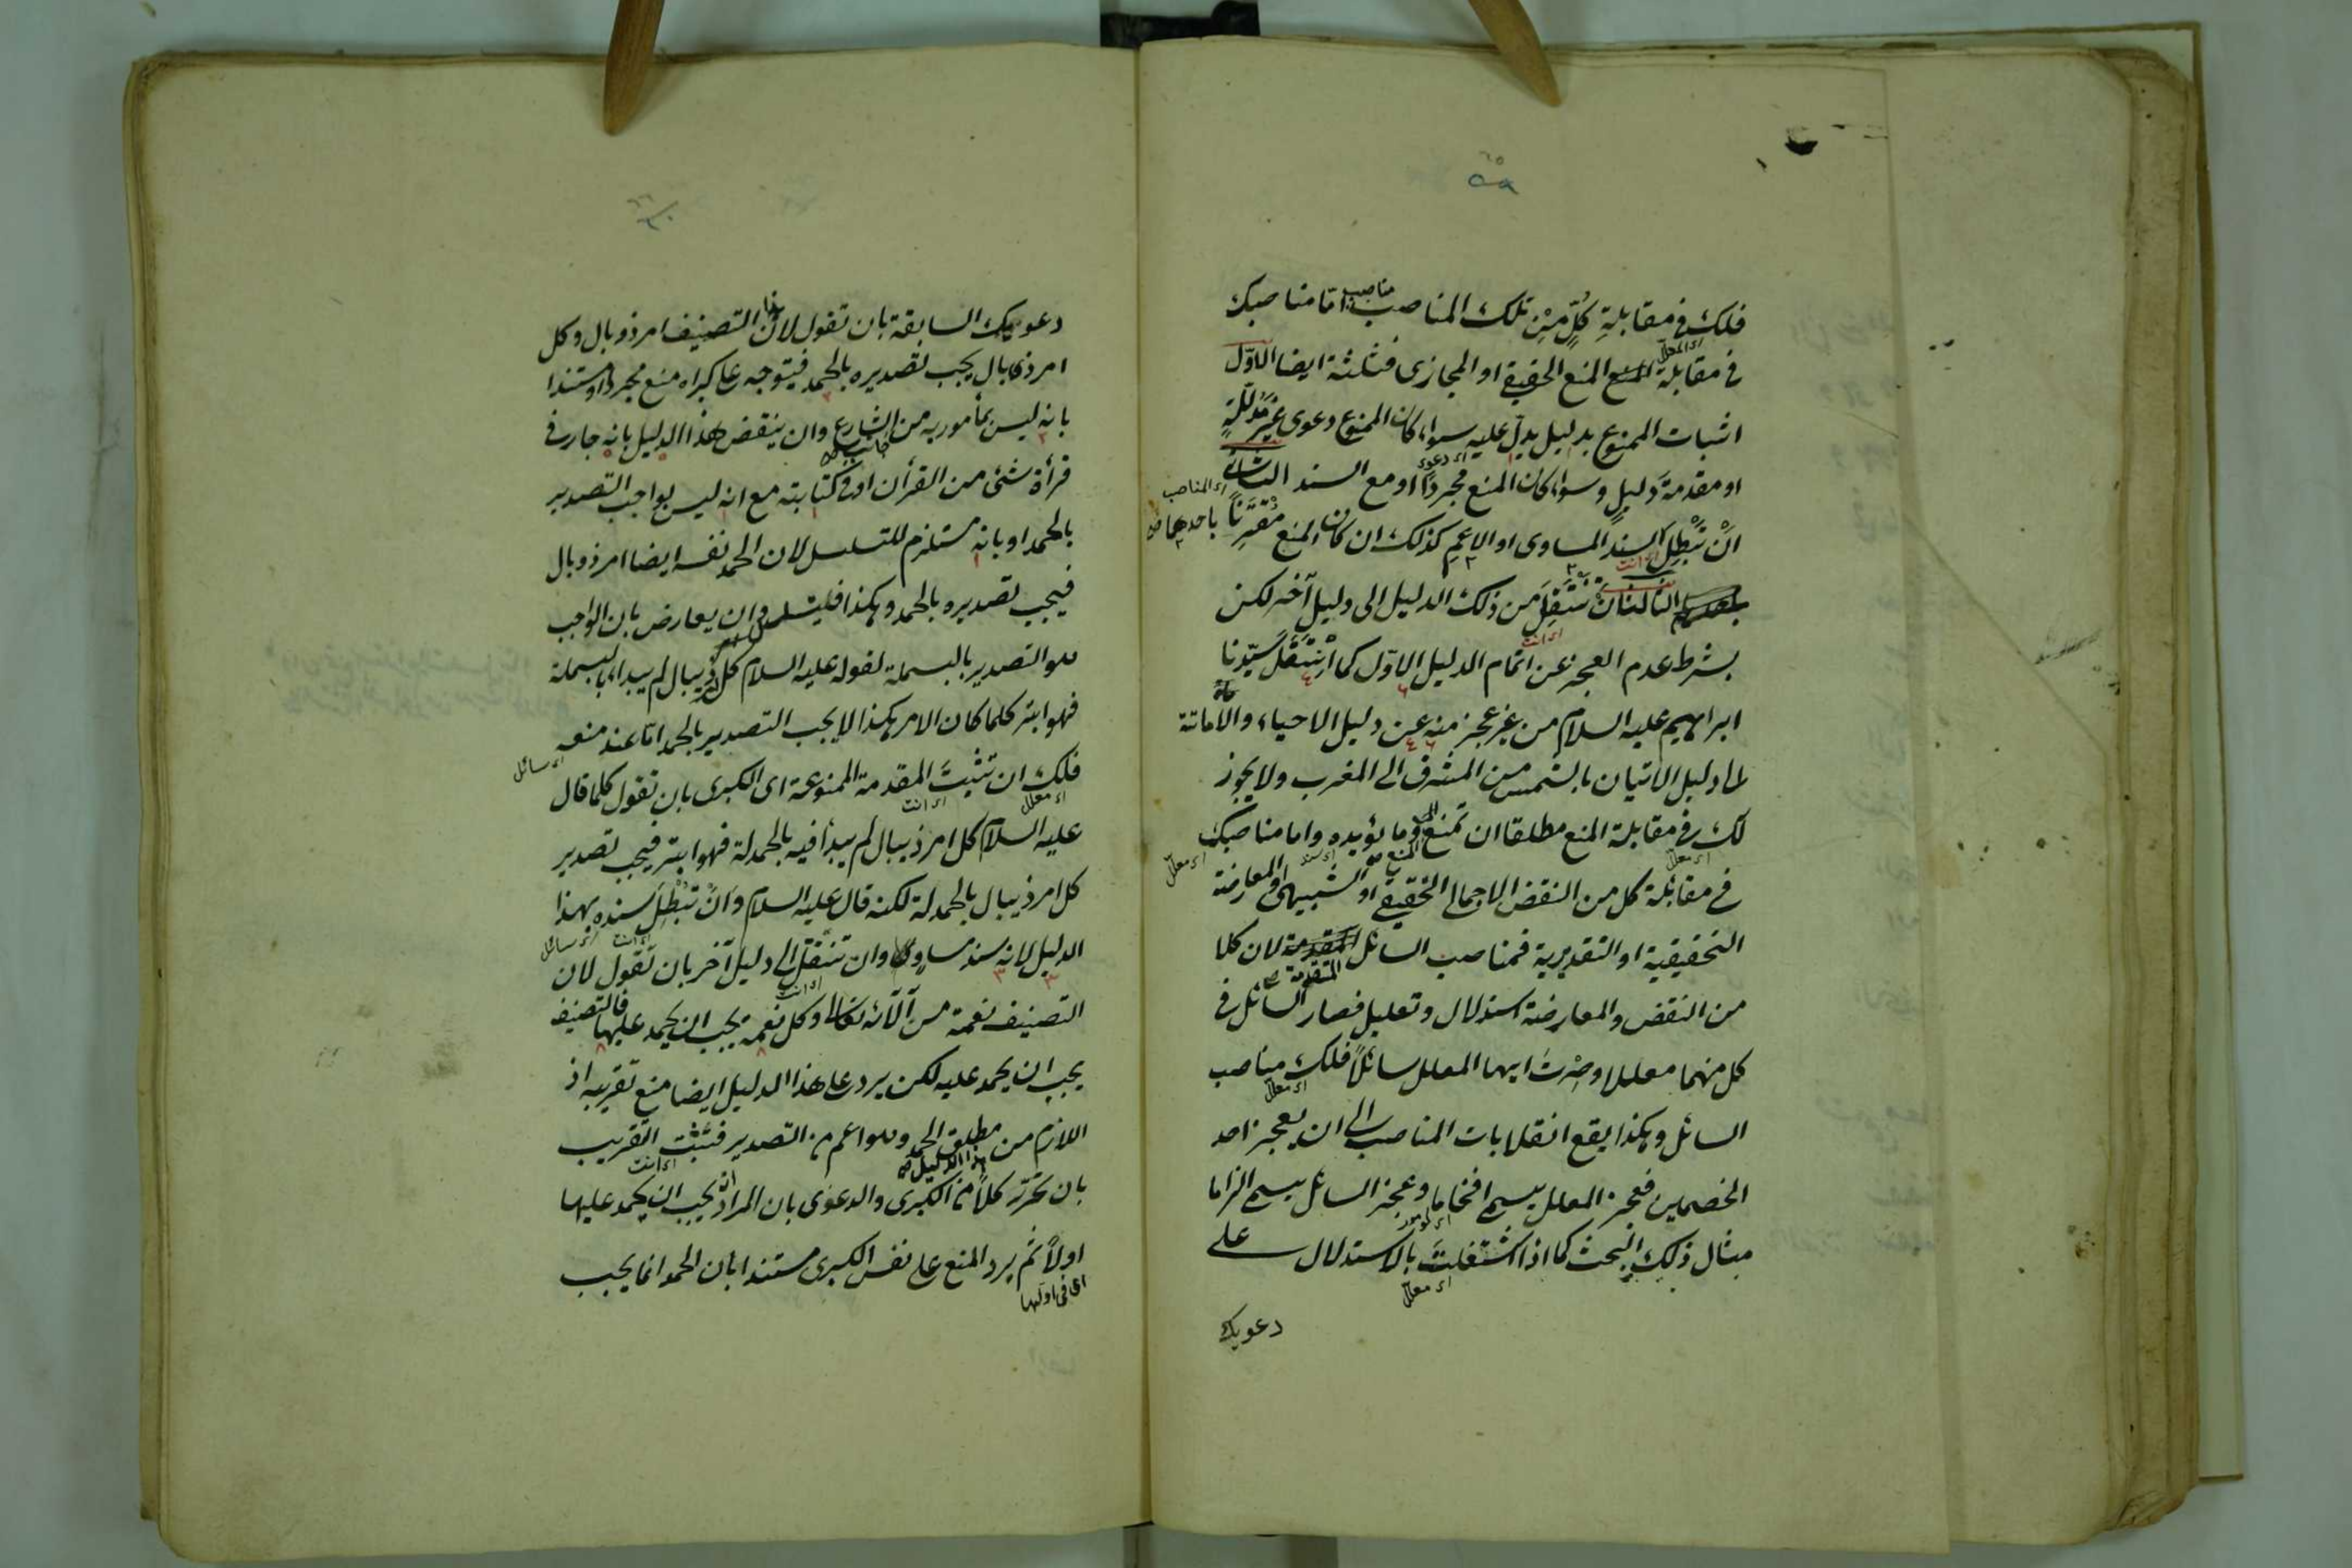 ٥٩
فلك في مقابلةِ كُلٍّ مِنْ تلك المناصب مناصب اما مناصبك
في مقابلة المنع الحقيقي او المجازى فثلثة ايضا الاوّل
اى المعلّل
اثبات الممنوع بدليل يدلّ عليه سواء كان الممنوع دعوى غَيْرَ مُدَلَّلَةٍ
او مقدمةَ دليلٍ وسواء كان المنع مجردًا او مع السند الثانى
اى دعوى
اى المناصب
انْ تُبْطِلَ السند المساوى او الاعم كذلك ان كان المنع مُقْتَرِنًا باحدهما
اى انت
الثالث ان تَنْتَقِلَ من ذلك الدليل الى دليل آخر لكن
بشرط عدم العجز عن اتمام الدليل الاوّل كما انْتَقَلَ سَيّدنا
اى انت
ابراهيم عليه السلام من غير عجز منه عن دليل الاحياء والاماتة
الى دليل الاتيان بالشمس من المشرق الى المغرب ولا يجوز
لك في مقابلة المنع مطلقا ان تمنع المنع وما يؤيده واما مناصبك
اى معلّل
اى سند
اى معلّل
في مقابلة كل من النقض الاجمالى التحقيقي او الشبيهى والمعارضة
التحقيقية او التقديرية فمناصب السائل المتقدمة لان كلا
من النقض والمعارضة استدلال وتعليل فصار السائل في
كل منهما معللا وصِرْتَ ايها المعلل سائلاً فلك مناصب
اى معلل
السائل وهكذا يقع انقلابات المناصب الى ان يعجز احد
الخصمين فعجز المعلل يسمى افحاما وعجز السائل يسمى الزاما
مثال ذلك البحث كما اذا اشتغلتَ بالاستدلال على
اى معلّل
دعويك
دعويك السابقة بان تقول لان التصنيف امر ذو بال وكل
امر ذى بال يجب تصديره بالحمد فيتوجه على كبراه منع مجردا او مستندا
بانه ليس بمأمور به من الشارع وان ينقض هذا الدليل بانه جار في
قرأة شئ من القرأن او في كتابته مع انه ليس بواجب التصدير
بالحمد او بانه مستلزم للتسلسل لان الحمد نفسه ايضا امر ذو بال
فيجب تصديره بالحمد وهكذا فليتسلسل وان يعارض بان الواجب
هو التصدير بالبسملة لقوله عليه السلام كل امر ذيبال لم يبدا بالبسملة
فهو ابتر كلما كان الامر هكذا لا يجب التصدير بالحمد اما عند منعه
اى سائل
فلك ان تثبتَ المقدمة الممنوعة اى الكبرى بان تقول كلما قال
اى معلل
اى انت
عليه السلام كل امر ذيبال لم يبدأ فيه بالحمدلة فهو ابتر فيجب تصدير
كل امر ذيبال بالحمدلة لكنه قال عليه السلام وانْ تُبْطِلَ سنده بهذا
اى انت
اى سائل
الدليل لانه سند مساوٍ وان تنتقل الى دليل آخر بان تقول لان
اى انت
التصنيف نعمة من آلائه تعالى وكل نعمة يجب ان يحمد عليها فالتصنيف
يجب ان يحمد عليه لكن يرد على هذا الدليل ايضا منع تقريبه اذ
اللازم من هذا الدليل مطلق الحمد وهو اعم من التصدير فتثبت التقريب
اى انت
بان تحرّر كلاً من الكبرى والدعوى بان المراد انه يجب ان يحمد عليها
اولاً ثم يرد المنع على نفس الكبرى مستندا بان الحمد انما يجب
اى فى اولها